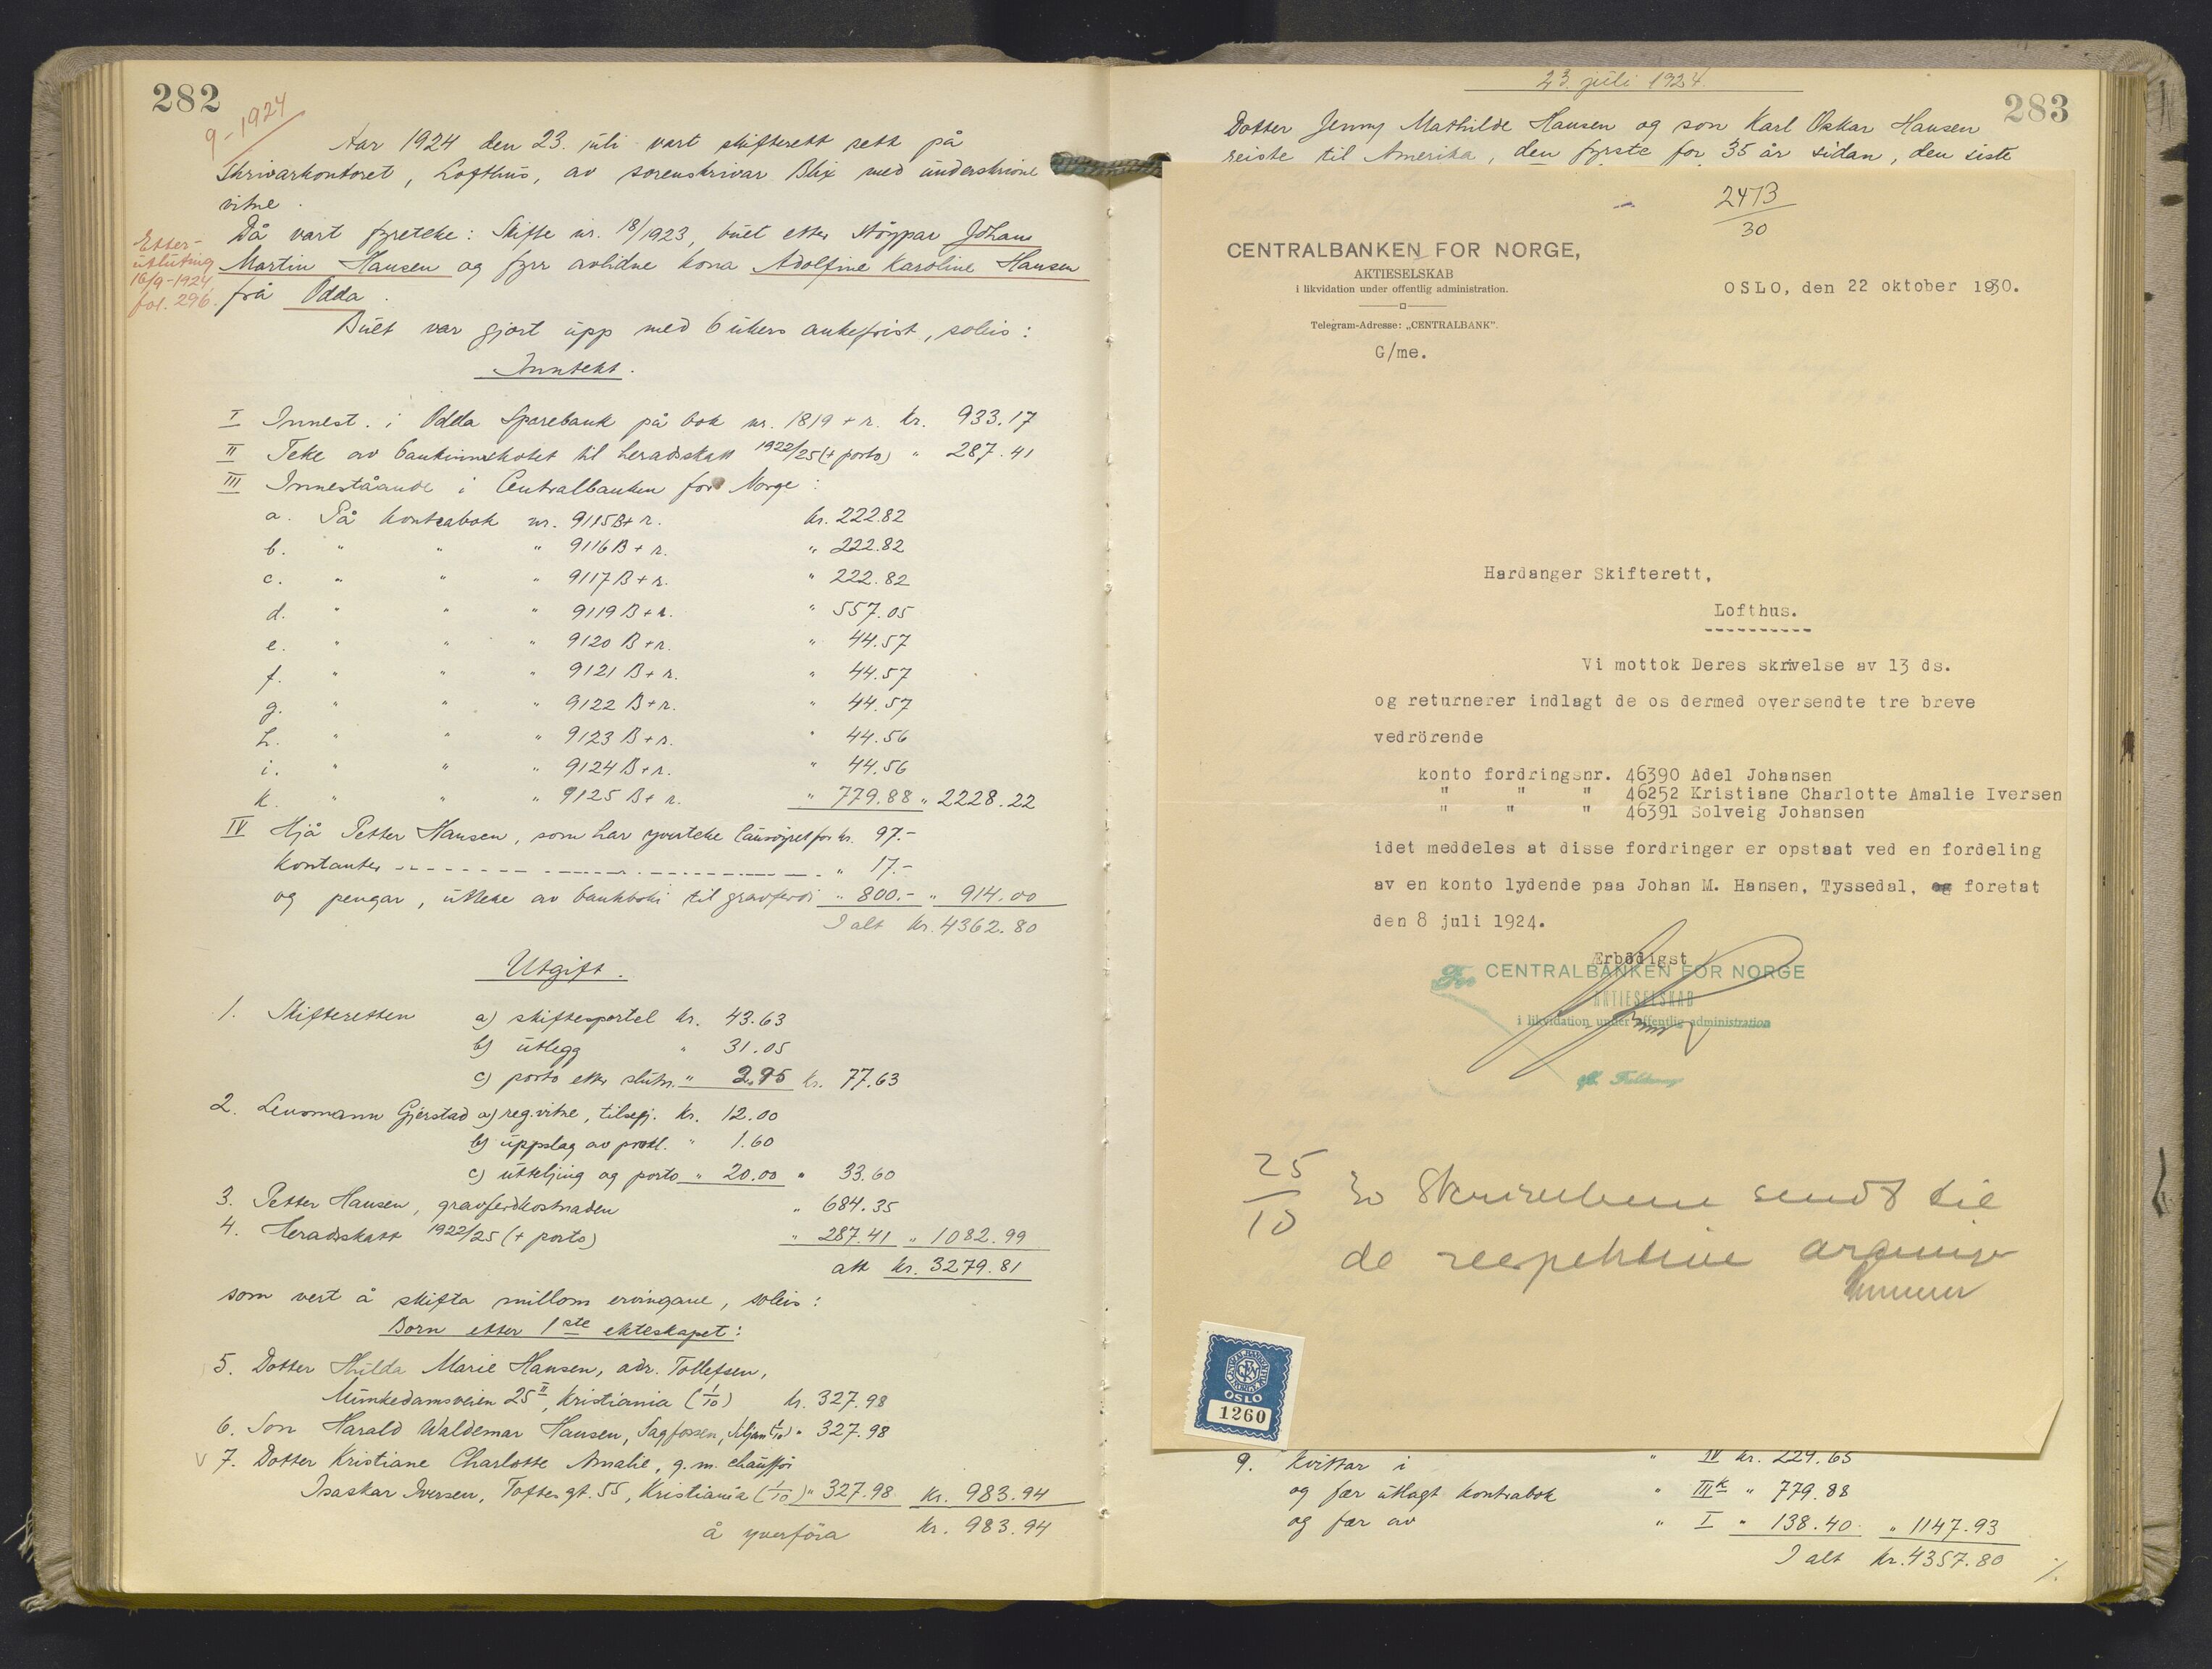 282
9-1924
Aar 1924 den 23. juli vart skifterett sett på
Skrivarkontoret, Lofthus, av sorenskrivar Blix med underskrivne
vitne.
Då vart fyreteke: Skifte nr. 18/1923, buet etter Johan
Martin Hansen og fyrr avlidne kona Adolfine Karoline Hansen
frå Odda.
Etter-
utlutning
16/9-1924,
fol. 296.
Buet var gjort upp med 6 ukers ankefrist, soleis:
Inntekt.
I Innest. i Odda Sparebank på bok nr. 1819 + r. kr. 933.17
II Teke av bankinnskotet til heradskatt 1922/25 (+ porto) " 287.41
III Innestående i Centralbanken for Norge:
a. På kontrabok nr. 9115 B + r. kr. 222.82
b. " " " 9116 B + r. " 222.82
c. " " " 9117 B + r. " 222.82
d. " " " 9119 B + r. " 557.05
e. " " " 9120 B + r. " 44.57
f. " " " 9121 B + r. " 44.57
g. " " " 9122 B + r. " 44.57
h. " " " 9123 B + r. " 44.56
i. " " " 9124 B + r. " 44.56
k. " " " 9125 B + r. " 779.88 " 2228.22
IV Hjå Petter Hansen, som har yverteke lausøyret for kr. 97.-
Kontanter " 17.-
og pengar, utteke av bankboki til gravferdi " 800.- " 914.00
I alt kr. 4362.80
Utgift.
1. Skifteretten a) skiftesportel kr. 43.63
b) utlegg " 31.05
c) porto etter slutn. " 2.95 kr. 77.63
2. Lensmann Gjerstad a) reg.vitne, tilsegj. kr. 12.00
b) uppslag av prokl. " 1.60
c) utteljing og porto " 20.00 " 33.60
3. Petter Hansen, gravferdkostnaden " 684.35
4. Heradskatt 1922/25 (+ porto) " 287.41 " 1082.99
att kr. 3279.81
som vert å skifta millom ervingane, soleis:
Born etter 1ste ekteskapet:
5. Dotter Hilda Marie Hansen, adr. Tollefsen,
Munkedamsveien 25 II, Kristiania (1/10) kr. 327.98
6. Son Harald Waldemar Hansen, Sagfossen, (1/10) " 327.98
v 7. Dotter Kristiane Charlotte Amalie, g. m. chauffør
Isaskar Iversen, Toftesgt. 55, Kristiania (1/10) " 327.98 kr. 983.94
å yverføra kr. 983.94
23. juli 1924.
283
Dotter Jenny Mathilde Hansen og son Karl Oskar Hansen
reiste til Amerika, den fyrste for 35 år sidan, den siste
2473
30
CENTRALBANKEN FOR NORGE,
AKTIESELSKAB
i likvidation under offentlig administration.
Telegram-Adresse: „CENTRALBANK".
OSLO, den 22 oktober 1930.
G/me.
Hardanger Skifterett,
Lofthus.
Vi mottok Deres skrivelse av 13 ds.
og returnerer indlagt de os dermed oversendte tre breve
vedrörende
konto fordringsnr. 46390 Adel Johansen
" " " 46252 Kristiane Charlotte Amalie Iversen
" " " 46391 Solveig Johansen
idet meddeles at disse fordringer er opstaat ved en fordeling
av en konto lydende paa Johan M. Hansen, Tyssedal, og foretat
den 8 juli 1924.
Erbödigst
For CENTRALBANKEN FOR NORGE
AKTIESELSKAB
i likvidation under offentlig administration
25/10 30 Skrivelsene sendt til
de respektive arvinger
OSLO
1260
9. Kvittar i " IV kr. 229.65
og fær utlagt kontrabok " III k " 779.88
og fær av " I " 138.40 " 1147.93
I alt kr. 4357.80